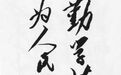 勤学
为人民